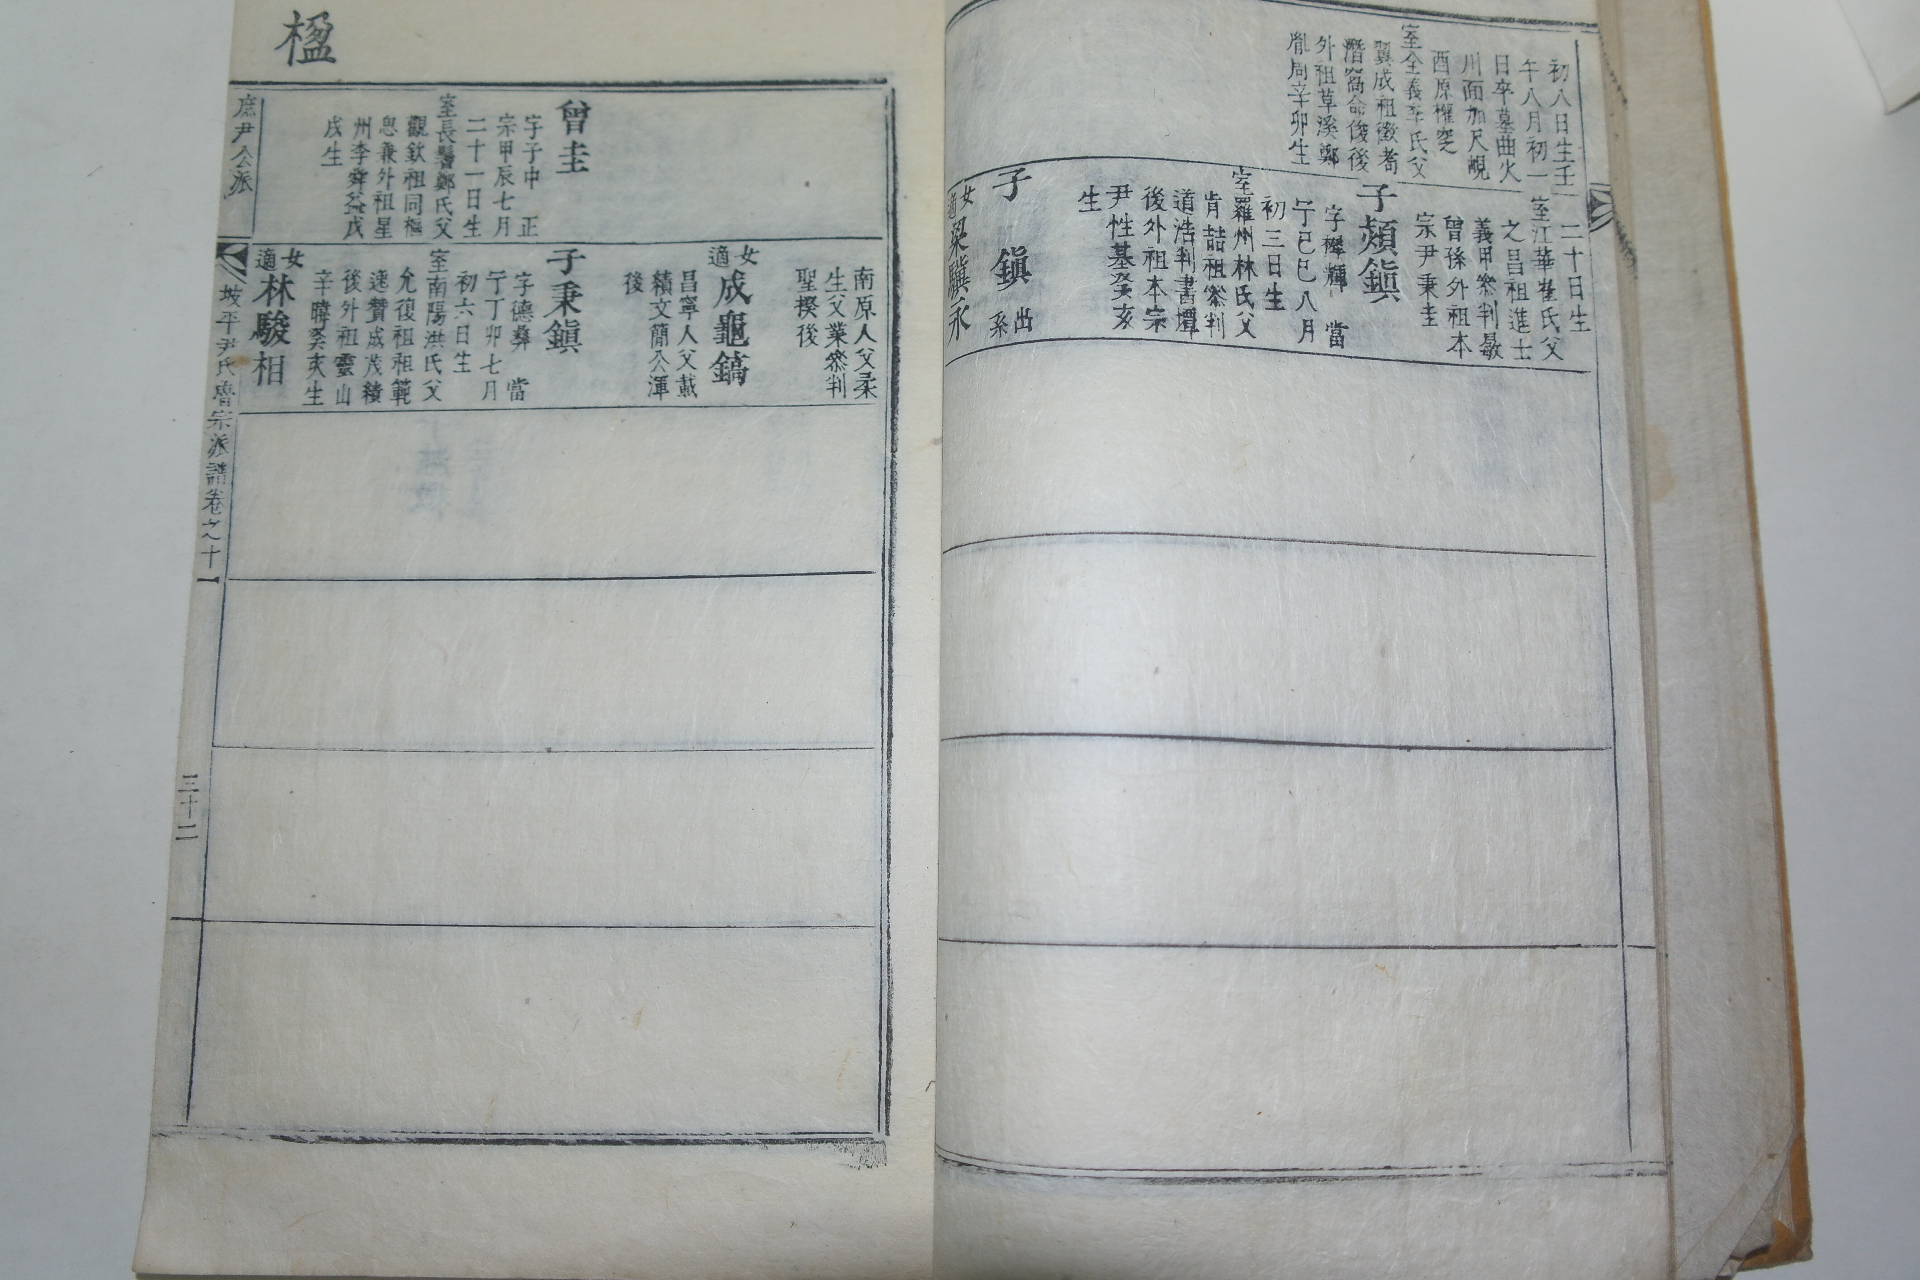 初八日生壬
午八月初一
日卒墓曲火
川面加尺峴
酉原權窆
室全義李氏父
翼成祖徵耈
後
外祖草溪鄭
胤周辛卯生
二十日生
室江華崔氏父
之昌祖進士
義甲參判
曾孫外祖本
宗尹秉圭
子頍鎭
字 輝 當
宁己巳八月
初三日生
室羅州林氏父
肯喆祖參判
道浩判書墰
後外祖本宗
尹性基癸亥
生
子 鎭
出系
女適梁驥永
楹
曾圭
字子中 正
宗甲辰七月
二十一日生
室長鬐鄭氏父
觀欽祖同樞
思兼外祖星
州李舜益戊
戌生
南原人父柔
生父業參判
聖楑後
女適成龜鎬
昌寧人父載
績文簡公渾
後
子秉鎭
字德彝 當
宁丁卯七月
初六日生
室南陽洪氏父
允復祖祖範
逸贊成茂績
後外祖靈山
辛暐癸亥生
女適林駿相
庶尹公派
坡平尹氏魯宗派譜卷之十一
三十二